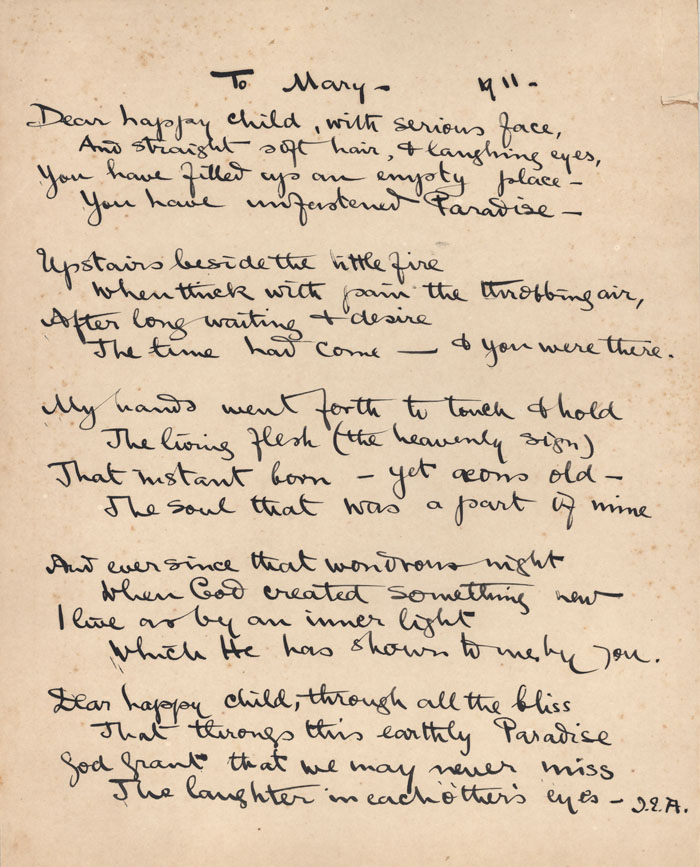 To Mary - 1911 -
Dear happy child, with serious face,
And straight soft hair, & laughing eyes,
You have filled up an empty place -
You have unfastened Paradise -
Upstairs beside the little fire
When thick with pain the throbbing air,
After long waiting & desire
The time had come — & you were there.
My hands went forth to touch & hold
The living flesh (the heavenly sign)
That instant born - yet æons old -
The soul that was a part of mine
And ever since that wondrous night
When God created something new
I live as by an inner light
Which He has shown to me by you.
Dear happy child, through all the bliss
That throngs this earthly Paradise
God grant that we may never miss
The laughter in each other's eyes - J.E.A.